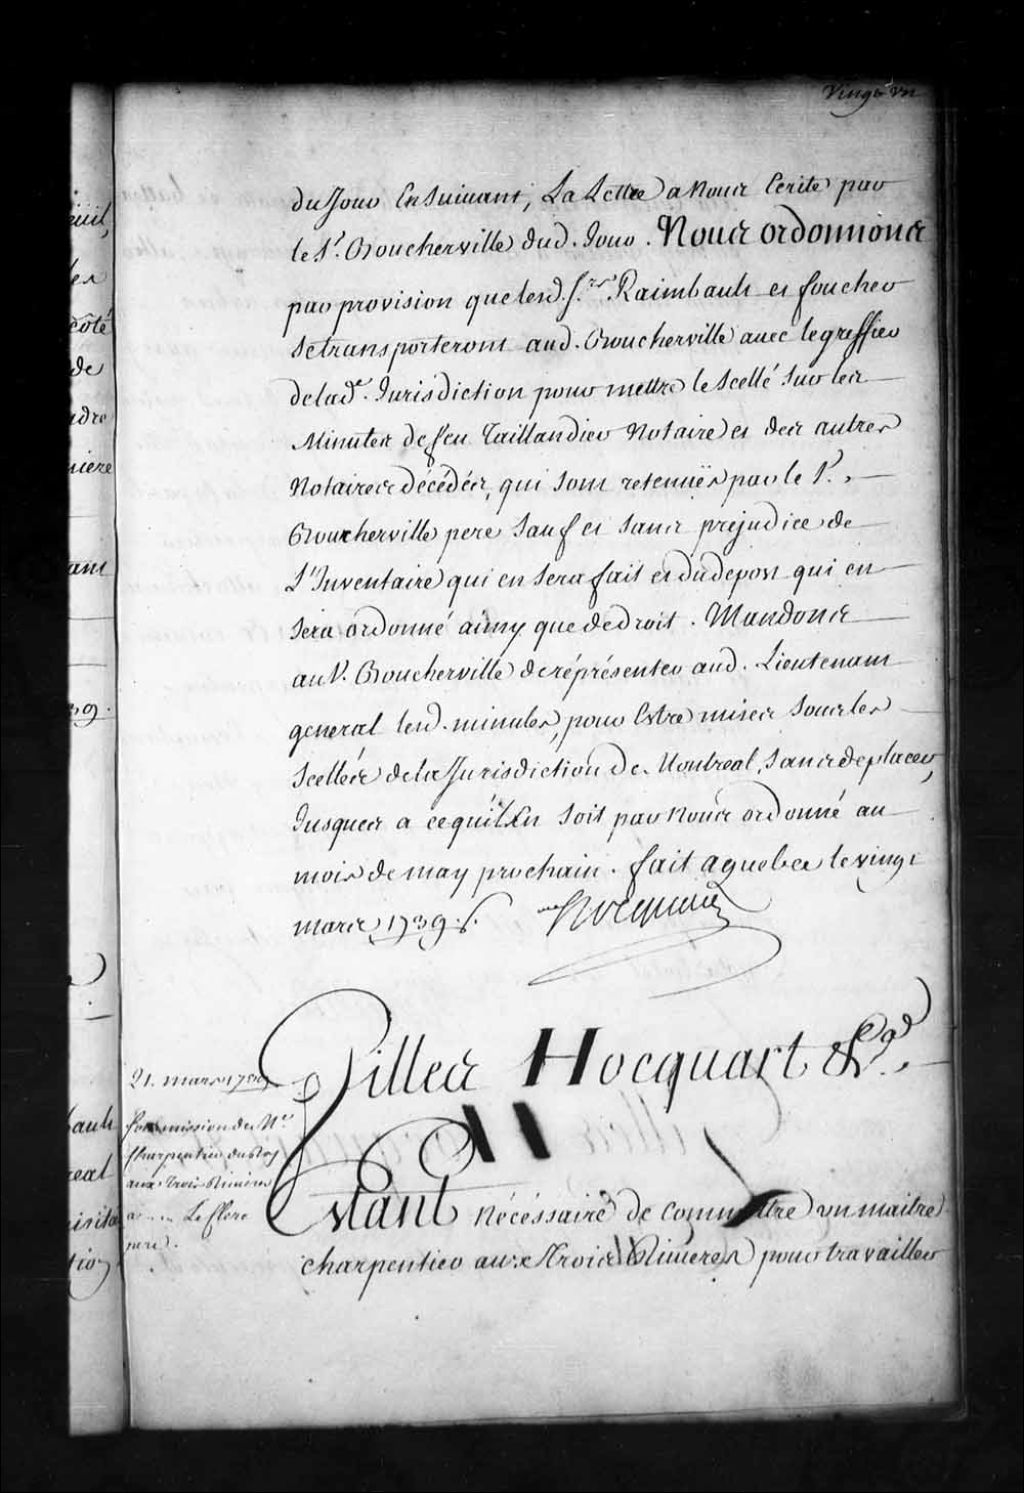 Vingt un
du Jour Ensuivant, La Lettre a Nous Ecrite par
le Sr. Boucherville dud. Jour. Nous ordonnons
par provision que lesd. Srs. Raimbault et foucher
se transporteront aud. Boucherville avec le greffier
de lade. Jurisdiction pour mettre le Scellé sur les
Minutes de feu Taillandier Notaire et des autres
Notaires décédés, qui sont retenuës par le Sr.
Boucherville pere sauf et sans préjudice de
L'Inventaire qui en sera fait et du depost qui en
sera ordonné ainsy que de droit. Mandons
au S. Boucherville de réprésenter aud. Lieutenant
general lesd. minutes, pour Estre mises sous les
Scellés de la Jurisdiction de Montreal, sans deplacer,
Jusques a ce qu'il En soit par Nous ordonné au
mois de may prochain. fait a quebec le vingt
mars 1739 ./.
Hocquart
Gilles Hocquart &ca.
21. mars 1739
Commission de Me.
Charpentier du Roy
aux Trois Rivieres
a .... Le Clerc
pere.
Estant nécéssaire de commettre un maitre
charpentier aux Trois Rivieres pour travailler
euil,
les
côté
de
ndre
niere
ant
39.
bault
real
visite
tion